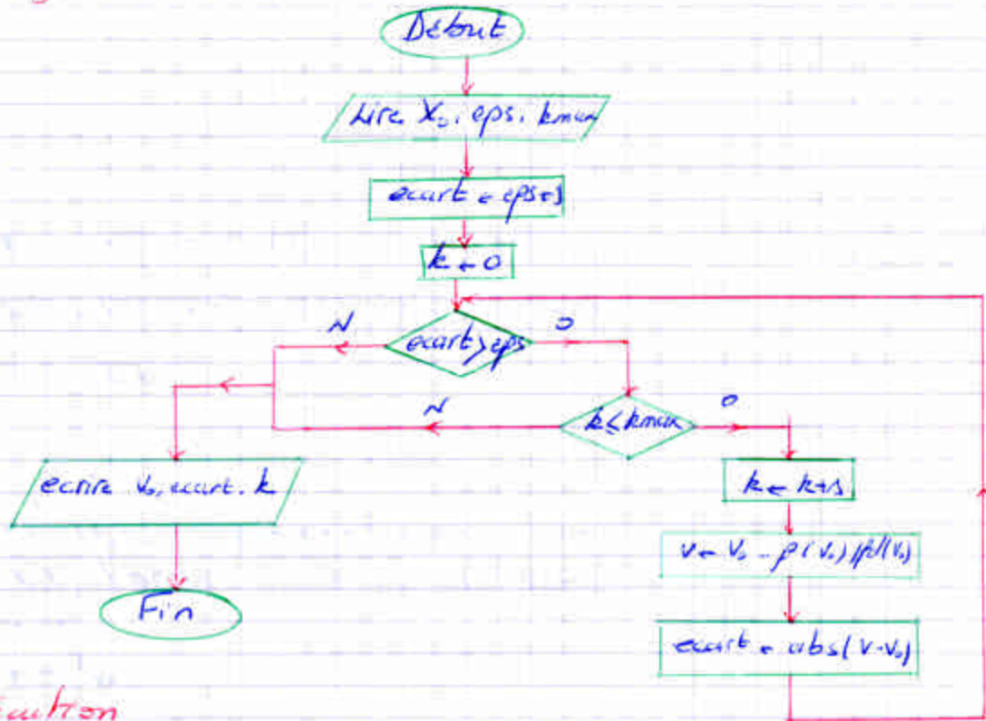 Début
Lire X₀, eps, kmax
ecart ← eps+1
k ← 0
ecart > eps
N
O
k ≤ kmax
N
O
ecrire V₀, ecart, k
k ← k+1
V ← V₀ - f(V₀)/f'(V₀)
ecart ← abs(V-V₀)
Fin